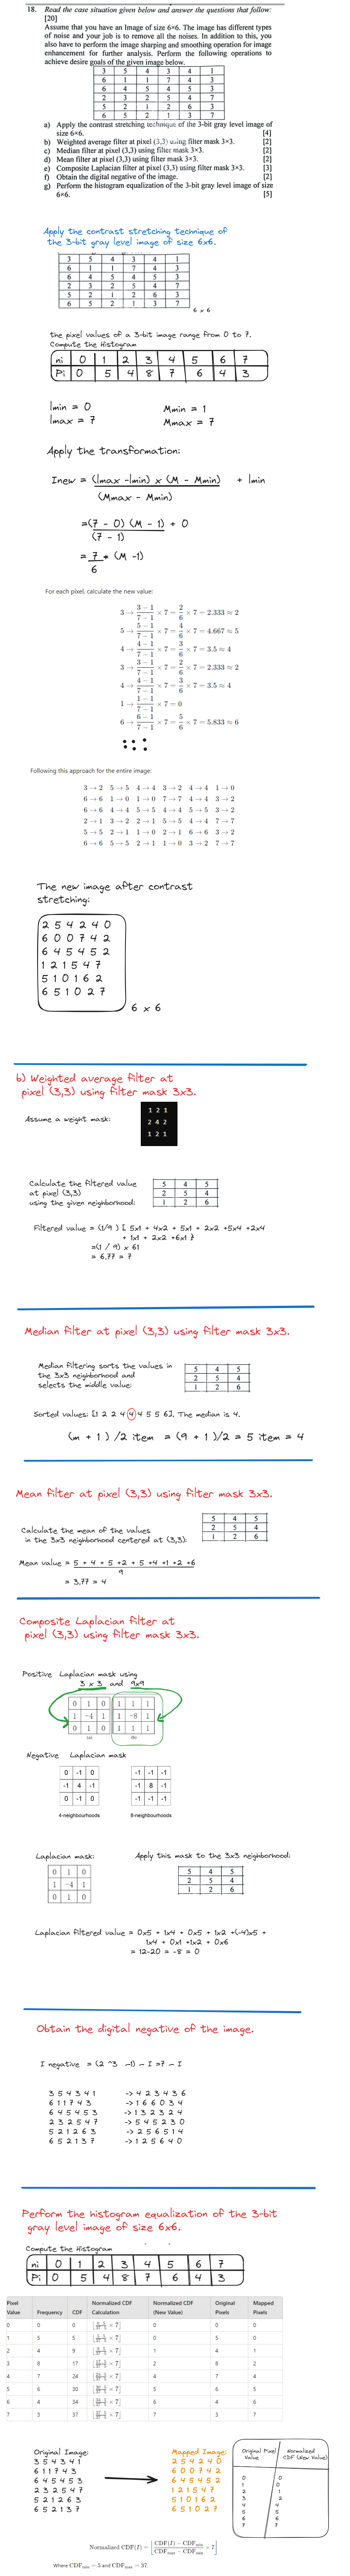 18. Read the case situation given below and answer the questions that follow:
[20]
Assume that you have an Image of size 6×6. The image has different types
of noise and your job is to remove all the noises. In addition to this, you
also have to perform the image sharping and smoothing operation for image
enhancement for further analysis. Perform the following operations to
achieve desire goals of the given image below.
3 5 4 3 4 1
6 1 1 7 4 3
6 4 5 4 5 3
2 3 2 5 4 7
5 2 1 2 6 3
6 5 2 1 3 7
a) Apply the contrast stretching technique of the 3-bit gray level image of
size 6×6. [4]
b) Weighted average filter at pixel (3,3) using filter mask 3×3. [2]
c) Median filter at pixel (3,3) using filter mask 3×3. [2]
d) Mean filter at pixel (3,3) using filter mask 3×3. [2]
e) Composite Laplacian filter at pixel (3,3) using filter mask 3×3. [3]
f) Obtain the digital negative of the image. [2]
g) Perform the histogram equalization of the 3-bit gray level image of size
6×6. [5]
Apply the contrast stretching technique of
the 3-bit gray level image of size 6x6.
3 5 4 3 4 1
6 1 1 7 4 3
6 4 5 4 5 3
2 3 2 5 4 7
5 2 1 2 6 3
6 5 2 1 3 7
6 x 6
the pixel values of a 3-bit image range from 0 to 7.
Compute the Histogram
ni 0 1 2 3 4 5 6 7
Pi 0 5 4 8 7 6 4 3
Imin = 0 Mmin = 1
Imax = 7 Mmax = 7
Apply the transformation:
Inew = (Imax -Imin) x (M - Mmin) + Imin
(Mmax - Mmin)
=(7 - 0) (M - 1) + 0
(7 - 1)
= 7 * (M -1)
6
For each pixel, calculate the new value:
3 → 3−1/7−1 × 7 = 2/6 × 7 = 2.333 ≈ 2
5 → 5−1/7−1 × 7 = 4/6 × 7 = 4.667 ≈ 5
4 → 4−1/7−1 × 7 = 3/6 × 7 = 3.5 ≈ 4
3 → 3−1/7−1 × 7 = 2/6 × 7 = 2.333 ≈ 2
4 → 4−1/7−1 × 7 = 3/6 × 7 = 3.5 ≈ 4
1 → 1−1/7−1 × 7 = 0
6 → 6−1/7−1 × 7 = 5/6 × 7 = 5.833 ≈ 6
Following this approach for the entire image:
3 → 2 5 → 5 4 → 4 3 → 2 4 → 4 1 → 0
6 → 6 1 → 0 1 → 0 7 → 7 4 → 4 3 → 2
6 → 6 4 → 4 5 → 5 4 → 4 5 → 5 3 → 2
2 → 1 3 → 2 2 → 1 5 → 5 4 → 4 7 → 7
5 → 5 2 → 1 1 → 0 2 → 1 6 → 6 3 → 2
6 → 6 5 → 5 2 → 1 1 → 0 3 → 2 7 → 7
The new image after contrast
stretching:
2 5 4 2 4 0
6 0 0 7 4 2
6 4 5 4 5 2
1 2 1 5 4 7
5 1 0 1 6 2
6 5 1 0 2 7
6 x 6
b) Weighted average filter at
pixel (3,3) using filter mask 3x3.
Assume a weight mask:
1 2 1
2 4 2
1 2 1
Calculate the filtered value
at pixel (3,3)
using the given neighborhood:
5 4 5
2 5 4
1 2 6
Filtered value = (1/9 ) [ 5x1 + 4x2 + 5x1 + 2x2 +5x4 +2x4
+ 1x1 + 2x2 +6x1 }
=(1 / 9) x 61
= 6.77 = 7
Median filter at pixel (3,3) using filter mask 3x3.
Median filtering sorts the values in
the 3x3 neighborhood and
selects the middle value:
5 4 5
2 5 4
1 2 6
Sorted values: [1 2 2 4 4 4 5 5 6]. The median is 4.
(m + 1 ) /2 item = (9 + 1 )/2 = 5 item = 4
Mean filter at pixel (3,3) using filter mask 3x3.
Calculate the mean of the values
in the 3x3 neighborhood centered at (3,3):
5 4 5
2 5 4
1 2 6
Mean value = 5 + 4 + 5 +2 + 5 +4 +1 +2 +6
9
= 3.77 = 4
Composite Laplacian filter at
pixel (3,3) using filter mask 3x3.
Positive Laplacian mask using
3 x 3 and 9x9
0 1 0 1 1 1
1 −4 1 1 −8 1
0 1 0 1 1 1
(a) (b)
Negative Laplacian mask
0 -1 0 -1 -1 -1
-1 4 -1 -1 8 -1
0 -1 0 -1 -1 -1
4-neighbourhoods 8-neighbourhoods
Laplacian mask: Apply this mask to the 3x3 neighborhood:
0 1 0
1 −4 1
0 1 0
5 4 5
2 5 4
1 2 6
Laplacian filtered value = 0x5 + 1x4 + 0x5 + 1x2 +(-4)x5 +
1x4 + 0x1 +1x2 + 0x6
= 12-20 = -8 = 0
Obtain the digital negative of the image.
I negative = (2 ^3 -1) - I =7 - I
3 5 4 3 4 1 -> 4 2 3 4 3 6
6 1 1 7 4 3 -> 1 6 6 0 3 4
6 4 5 4 5 3 -> 1 3 2 3 2 4
2 3 2 5 4 7 -> 5 4 5 2 3 0
5 2 1 2 6 3 -> 2 5 6 5 1 4
6 5 2 1 3 7 -> 1 2 5 6 4 0
Perform the histogram equalization of the 3-bit
gray level image of size 6x6.
Compute the Histogram
ni 0 1 2 3 4 5 6 7
Pi 0 5 4 8 7 6 4 3
Pixel Value Frequency CDF Normalized CDF Calculation Normalized CDF (New Value) Original Pixels Mapped Pixels
0 0 0 0 0 0
1 5 5 0 5 0
2 4 9 1 4 1
3 8 17 2 8 2
4 7 24 4 7 4
5 6 30 5 6 5
6 4 34 6 4 6
7 3 37 7 3 7
Original Image: Mapped Image:
3 5 4 3 4 1 2 5 4 2 4 0
6 1 1 7 4 3 6 0 0 7 4 2
6 4 5 4 5 3 6 4 5 4 5 2
2 3 2 5 4 7 1 2 1 5 4 7
5 2 1 2 6 3 5 1 0 1 6 2
6 5 2 1 3 7 6 5 1 0 2 7
Original Pixel Value Normalized CDF (New Value)
0 0
1 0
2 1
3 2
4 4
5 5
6 6
7 7
Normalized CDF(I) = ⌊CDF(I) − CDFmin/CDFmax − CDFmin × 7⌋
Where CDFmin = 5 and CDFmax = 37.